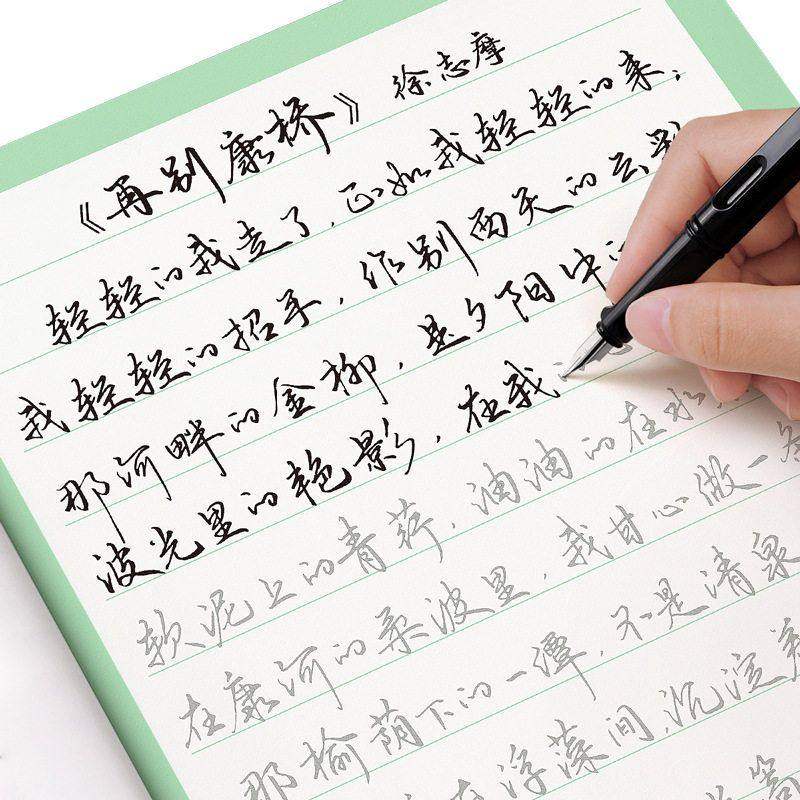 《再别康桥》 徐志摩
轻轻的我走了，正如我轻轻的来；
我轻轻的招手，作别西天的云彩
那河畔的金柳，是夕阳中
波光里的艳影，在我
软泥上的青荇，油油的在水
在康河的柔波里，我甘心做一条
那榆荫下的一潭，不是清泉
在浮藻间，沉淀着